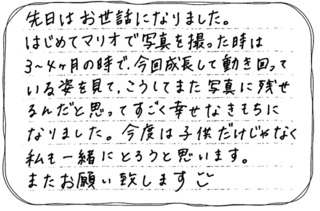 先日はお世話になりました。
はじめてマリオで写真を撮った時は
3〜4ヶ月の時で、今回成長して動き回って
いる姿を見て、こうしてまた写真に残せ
るんだと思ってすごく幸せなきもちに
なりました。今度は子供だけじゃなく
私も一緒にとろうと思います。
またお願い致します